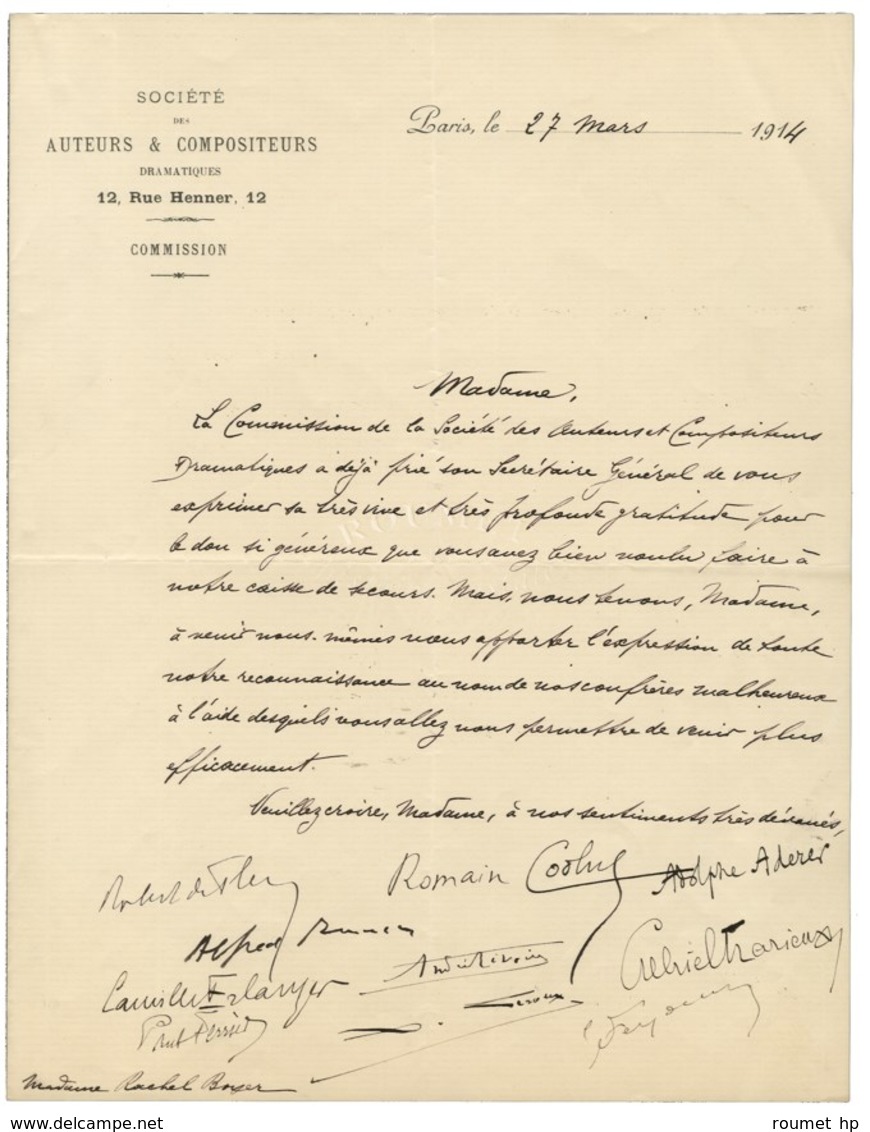 SOCIÉTÉ
DES
AUTEURS & COMPOSITEURS
DRAMATIQUES
12, Rue Henner, 12
COMMISSION
Paris, le 27 Mars 1914
Madame,
La Commission de la Société des Auteurs et Compositeurs
Dramatiques a déjà prié son Secrétaire Général de vous
exprimer sa très vive et très profonde gratitude pour
le don si généreux que vous avez bien voulu faire à
notre caisse de secours. Mais, nous tenons, Madame,
à venir nous-mêmes vous apporter l'expression de toute
notre reconnaissance au nom de nos confrères malheureux
à l'aide desquels vous allez nous permettre de venir plus
efficacement.
Veuillez croire, Madame, à nos sentiments très dévoués,
Robert de Flers
Romain Coolus
Adolphe Aderer
Alfred Bruneau
André Rivoire
Gabriel Trarieux
Camille Erlanger
Leroux
Paul Ferrier
Madame Rachel Boyer
roumet hp